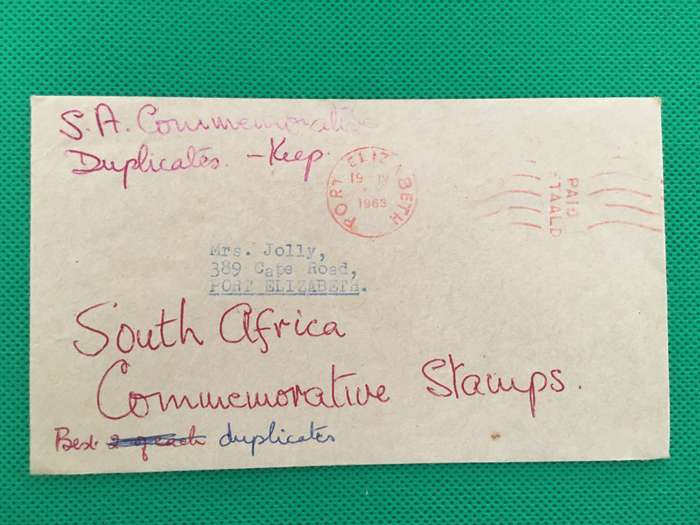 S.A. Commemorative
Duplicates. - Keep.
PORT ELIZABETH
19 IV
1963
PAID
TAALD
Mrs. Jolly,
389 Cape Road,
PORT ELIZABETH.
South Africa
Commemorative Stamps.
Best 2 of each duplicates